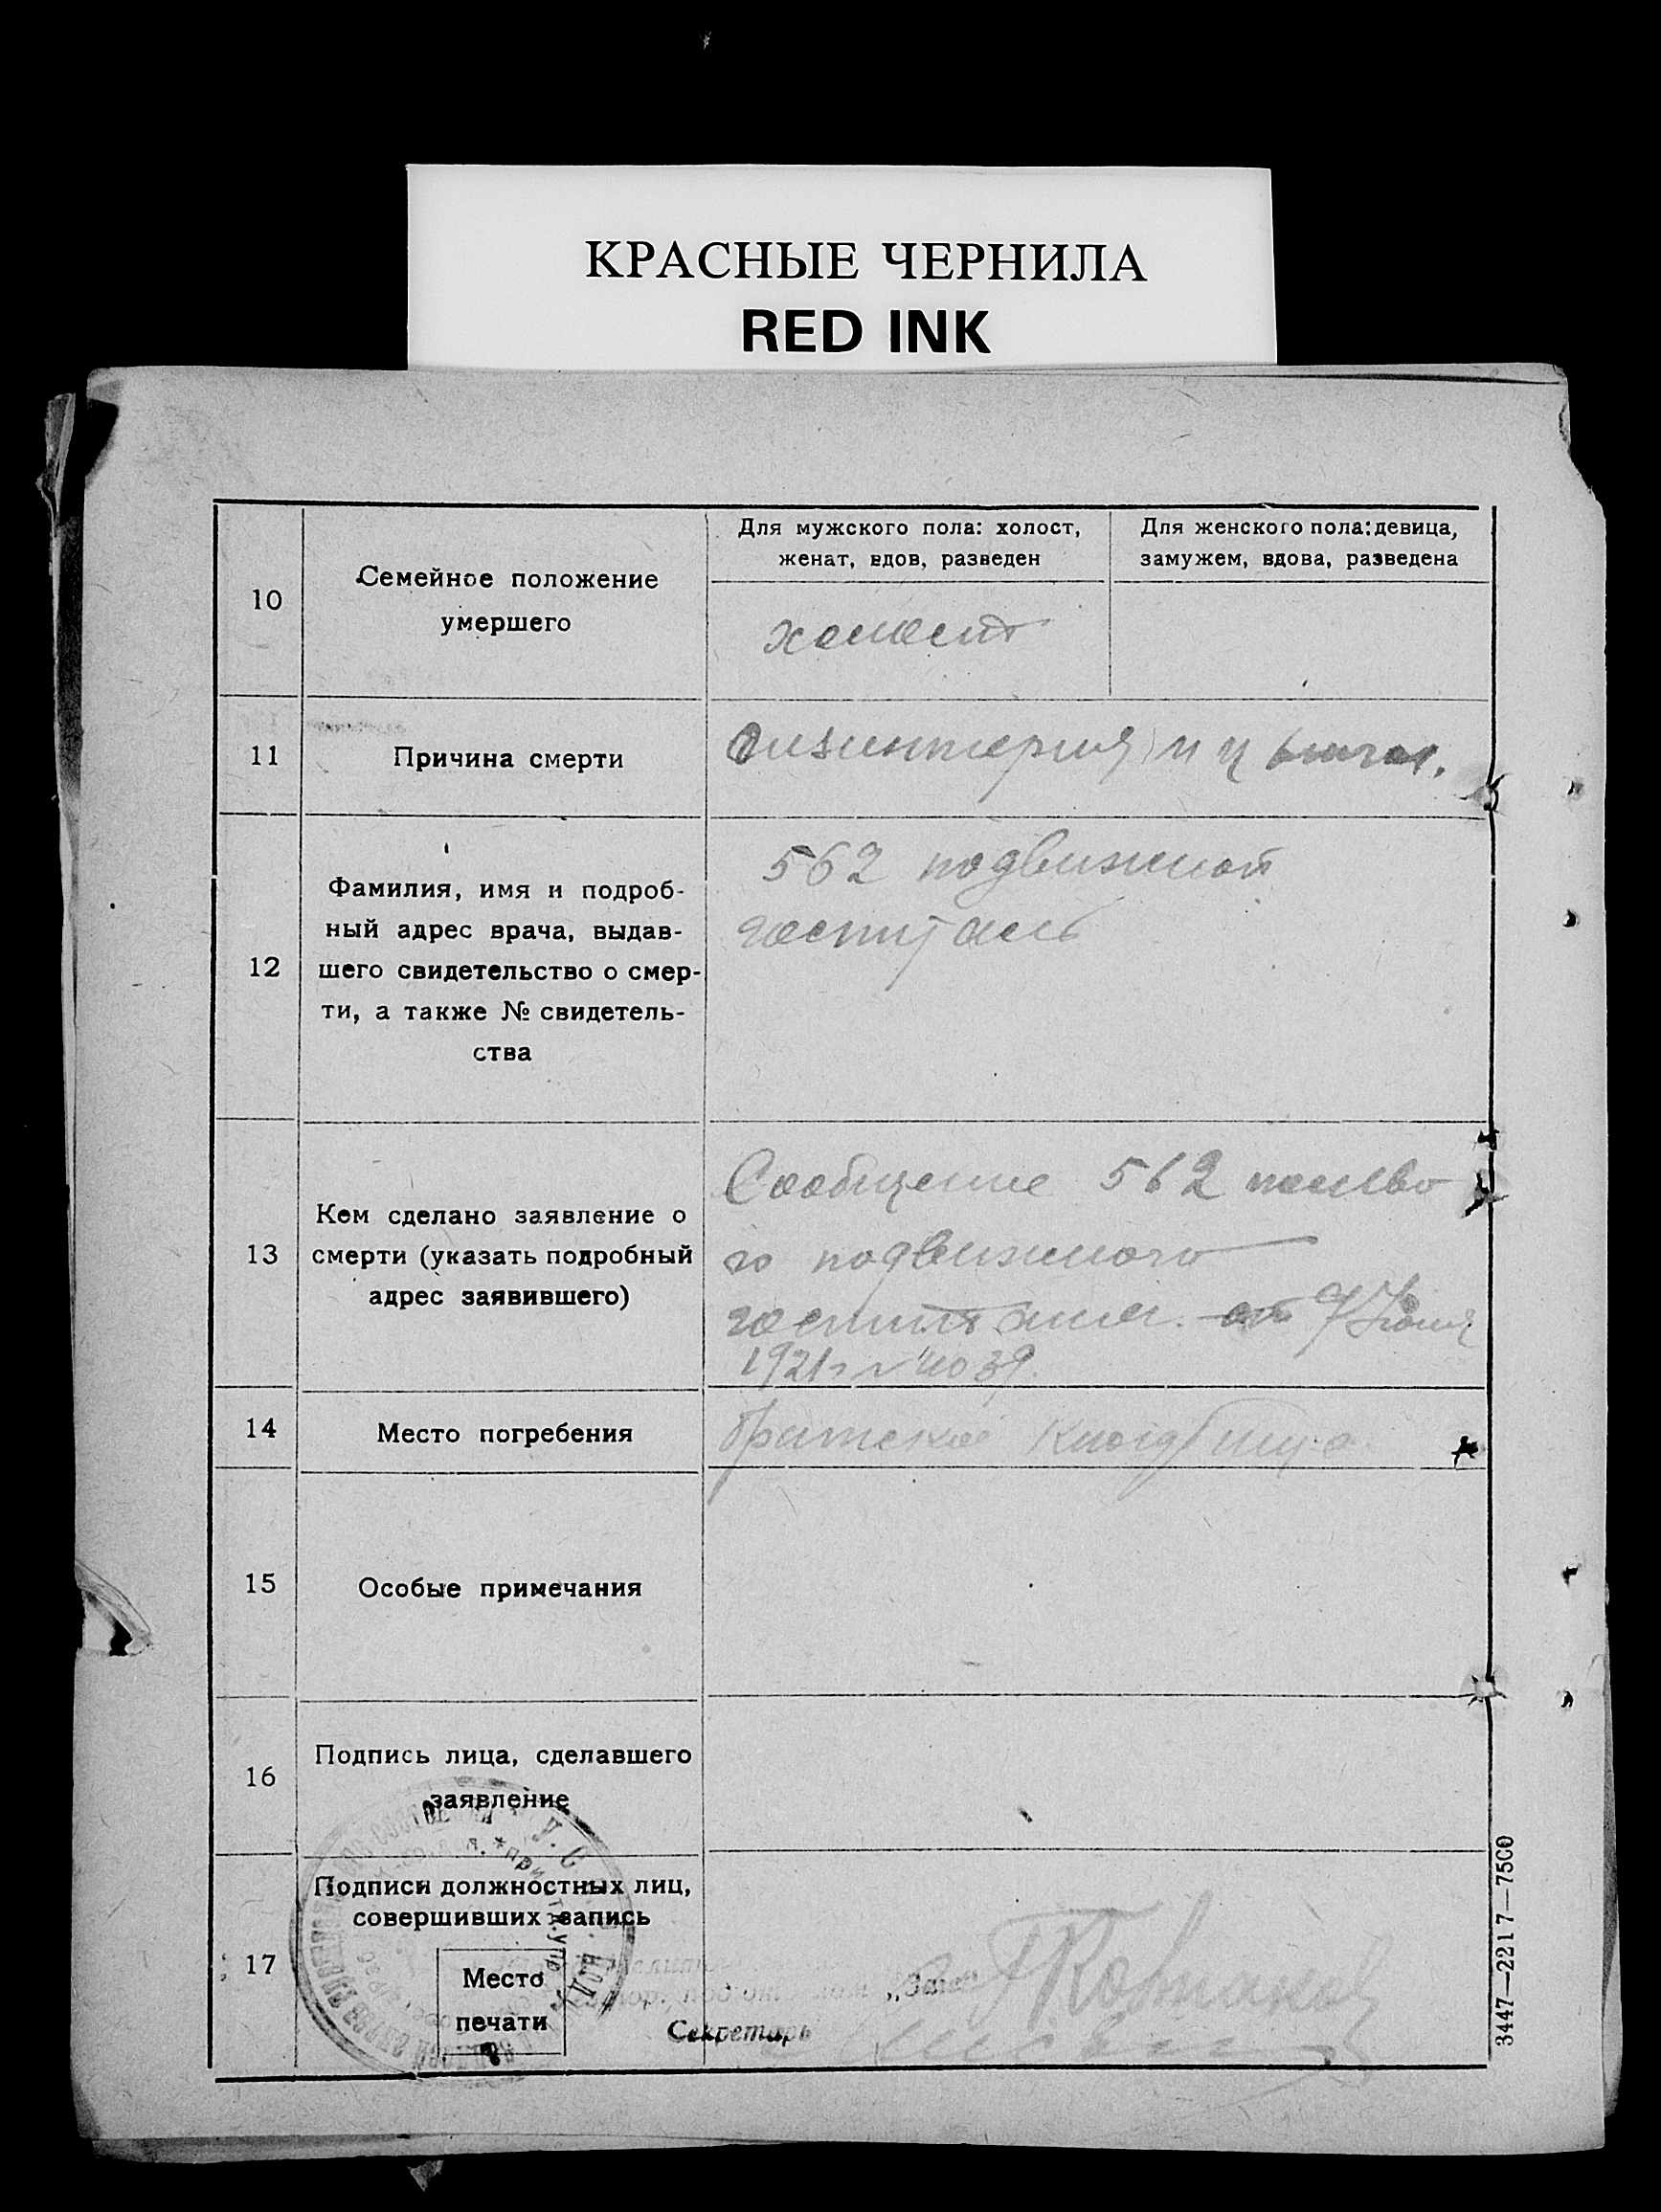 КРАСНЫЕ ЧЕРНИЛА
RED INK
10
Семейное положение
умершего
Для мужского пола: холост,
женат, вдов, разведен
Для женского пола: девица,
замужем, вдова, разведена
холост
11
Причина смерти
дизинтерия и цынга.
12
Фамилия, имя и подроб-
ный адрес врача, выдав-
шего свидетельство о смер-
ти, а также № свидетель-
ства
562 подвижной
госпиталь
13
Кем сделано заявление о
смерти (указать подробный
адрес заявившего)
Сообщение 562 полево
го подвижного
госпиталя от 7 Июня
1921 г № 4039.
14
Место погребения
Братское кладбище
15
Особые примечания
16
Подпись лица, сделавшего
заявление
17
Подписи должностных лиц,
совершивших запись
Место
печати
„Заг“
Секретарь
3447—2217—7500